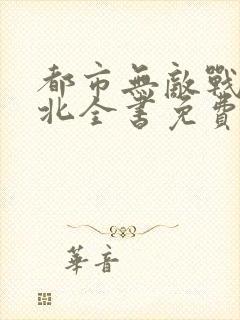 都市無敵戰
北全書免費
華音